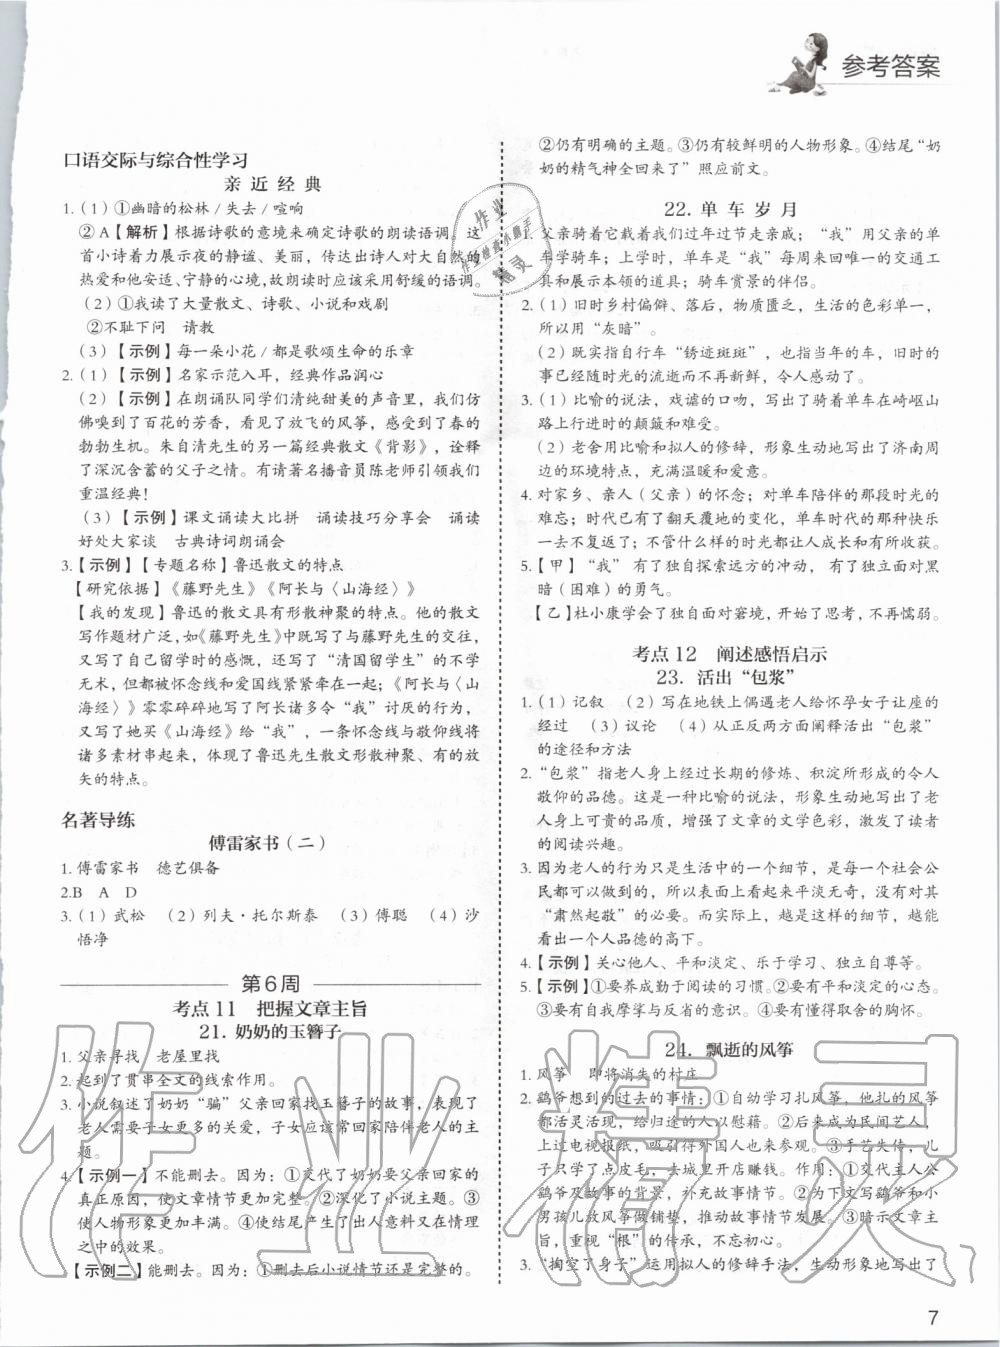 参考答案
口语交际与综合性学习
亲近经典
1.（1）①幽暗的松林/失去/喧响
②A【解析】根据诗歌的意境来确定诗歌的朗读语调。这
首小诗着力展示夜的静谧、美丽，传达出诗人对大自然的
热爱和他安适、宁静的心境，故朗读时应该采用舒缓的语调。
（2）①我读了大量散文、诗歌、小说和戏剧
②不耻下问 请教
（3）【示例】每一朵小花/都是歌颂生命的乐章
2.（1）【示例】名家示范入耳，经典作品润心
（2）【示例】在朗诵队同学们清纯甜美的声音里，我们仿
佛嗅到了百花的芳香，看见了放飞的风筝，感受到了春的
勃勃生机。朱自清先生的另一篇经典散文《背影》，诠释
了深沉含蓄的父子之情。有请著名播音员陈老师引领我们
重温经典！
（3）【示例】课文诵读大比拼 诵读技巧分享会 诵读
好处大家谈 古典诗词朗诵会
3.【示例】【专题名称】鲁迅散文的特点
【研究依据】《藤野先生》《阿长与〈山海经〉》
【我的发现】鲁迅的散文具有形散神聚的特点。他的散文
写作题材广泛，如《藤野先生》中既写了与藤野先生的交往，
又写了自己留学时的感慨，还写了“清国留学生”的不学
无术，但都被怀念线和爱国线紧紧牵在一起；《阿长与〈山
海经〉》零零碎碎地写了阿长诸多令“我”讨厌的行为，
又写了她买《山海经》给“我”，一条怀念线与敬仰线将
诸多素材串起来，体现了鲁迅先生散文形散神聚、有的放
矢的特点。
名著导练
傅雷家书（二）
1.傅雷家书 德艺俱备
2.B A D
3.（1）武松 （2）列夫·托尔斯泰 （3）傅聪 （4）沙
悟净
第6周
考点11 把握文章主旨
21.奶奶的玉簪子
1.父亲寻找 老屋里找
2.起到了贯串全文的线索作用。
3.小说叙述了奶奶“骗”父亲回家找玉簪子的故事，表现了
老人需要子女更多的关爱，子女应该常回家陪伴老人的主
题。
4.【示例一】不能删去。因为：①交代了奶奶要父亲回家的
真正原因，使文章情节更加完整。②深化了小说主题。③
使人物形象更加丰满。④使结尾产生了出人意料又在情理
之中的效果。
【示例二】能删去。因为：①删去后小说情节还是完整的。
②仍有明确的主题。③仍有较鲜明的人物形象。④结尾“奶
奶的精气神全回来了”照应前文。
22.单车岁月
1.父亲骑着它载我们过年过节走亲戚；“我”用父亲的单
车学骑车；上学时，单车是“我”每周来回的唯一的交通工
具和展示本领的道具；骑车赏景的伴侣。
2.（1）旧时乡村偏僻、落后，物质匮乏，生活的色彩单一，
所以用“灰暗”。
（2）既实指自行车“锈迹斑斑”，也指骑单车的年代，旧时的
事已经随时光的流逝而不再新鲜，令人感动了。
3.（1）比喻的说法，戏谑的口吻，写出了骑着单车在崎岖山
路上行进时的颠簸和难受。
（2）老舍用比喻和拟人的修辞，形象生动地写出了济南周
边的环境特点，充满温暖和爱意。
4.对家乡、亲人（父亲）的怀念；对单车陪伴的那段时光的
难忘；时代已有了翻天覆地的变化，单车时代的那种快乐
一去不复返了；不管什么样的时光都让人成长和有所收获。
5.【甲】“我”有了独自探索远方的冲动，有了独立面对黑
暗（困难）的勇气。
【乙】杜小康学会了独自面对窘境，开始了思考，不再懦弱。
考点12 阐述感悟启示
23.活出“包浆”
1.（1）记叙 （2）写在地铁上偶遇老人给怀孕女子让座的
经过 （3）议论 （4）从正反两方面阐释活出“包浆”
的途径和方法
2.“包浆”指老人身上经过长期的修炼、积淀所形成的令人
敬仰的品德。这是一种比喻的说法，形象生动地写出了老
人身上高贵的品质，增强了文章的文学色彩，激发了读者
的阅读兴趣。
3.因为老人的行为只是生活中的一个细节，是每一个社会公
民都可以做到的，所以表现起来平淡无奇，没有使人真的
“肃然起敬”的必要。而实际上，越是这样的细节，越能
看出一个人品德的高下。
4.【示例】关心他人、平和淡定、乐于学习、独立自尊等。
5.【示例】①要养成勤于阅读的习惯。②要有平和淡定的心态。
③要有自我摩挲与反省的意识。④要有懂得取舍的胸怀。
24.飘逝的风筝
1.风筝 即将消失的村庄
2.鹞爷想到的过去的事情：①自幼学习扎风筝，他扎的风筝
都活灵活现，给归途的人以慰藉。②后来成为民间艺人，
上过电视报纸，吸引得外国人也来参观。③手艺失传，儿
子只学了点皮毛，去城里开店赚钱。作用：①介绍主人公
鹞爷及故事的背景，补充故事情节。②为下文写鹞爷和小
男孩儿放风筝做铺垫，推动故事情节发展。③暗示文章主
旨，重视“根”的传承，不忘初心。
3.“掏空了身子”运用拟人的修辞手法，生动形象地写出了
7
作业精灵